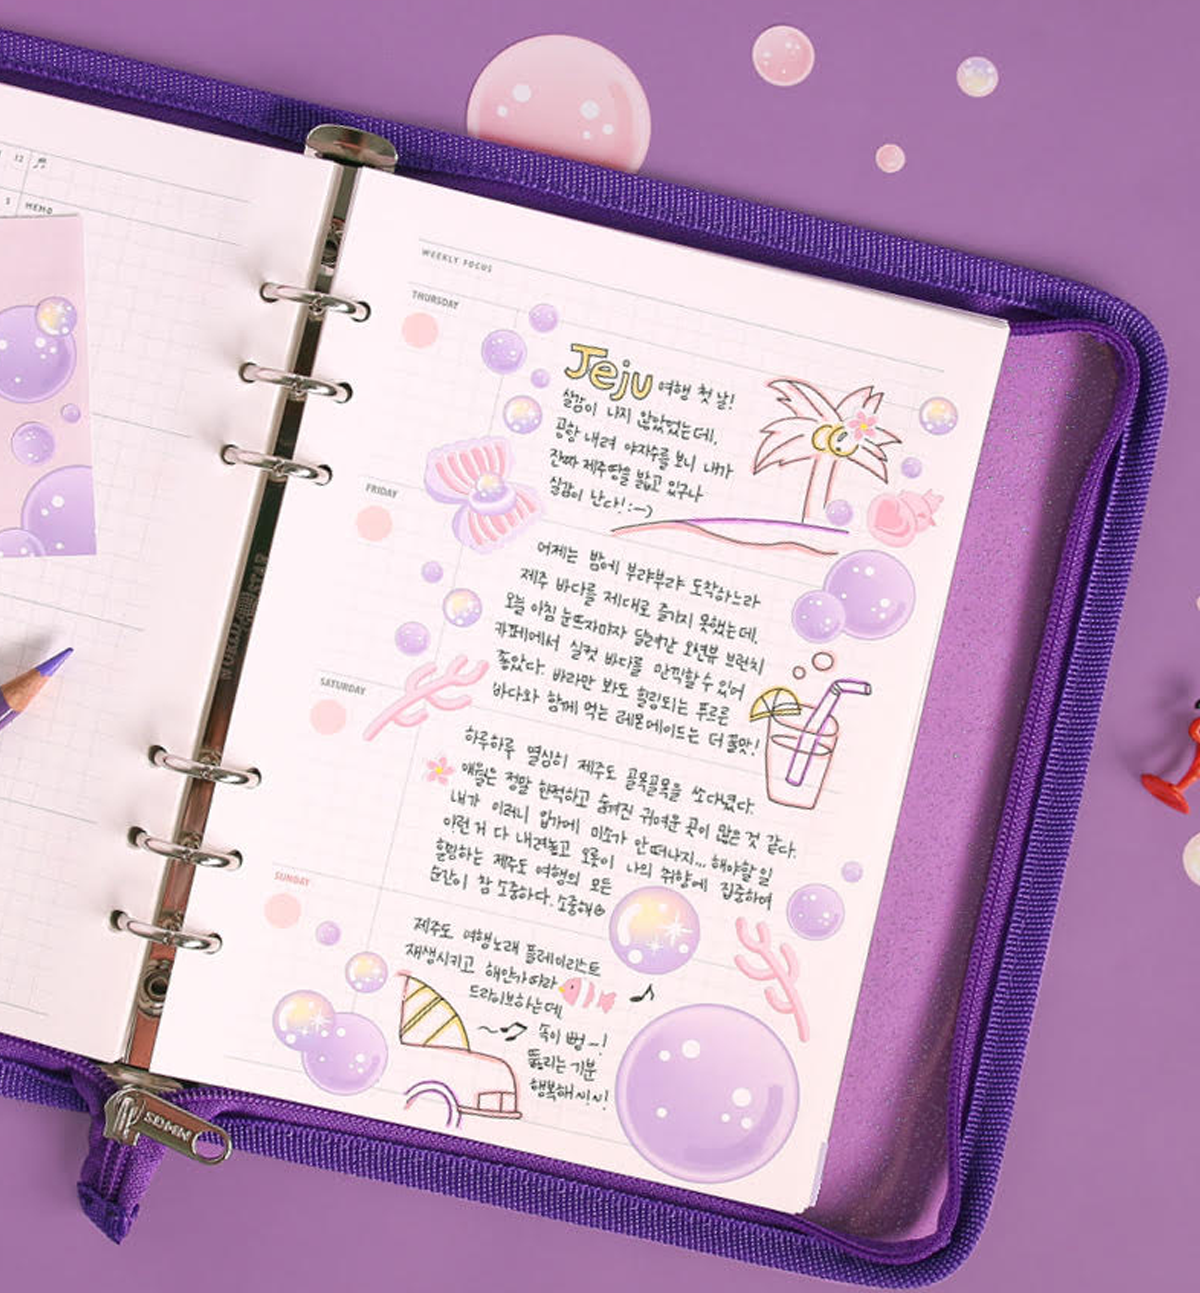 12
5 MEMO
WEEKLY FOCUS
THURSDAY
Jeju 여행 첫 날!
실감이 나지 않았었는데,
공항 내려 야자수를 보니 내가
진짜 제주땅을 밟고 있구나
실감이 난다! :-)
FRIDAY
어제는 밤에 부랴부랴 도착하느라
제주 바다를 제대로 즐기지 못했는데,
오늘 아침 눈뜨자마자 달려간 오션뷰 브런치
카페에서 실컷 바다를 만끽할 수 있어
좋았다. 바라만 봐도 힐링되는 푸르른
바다와 함께 먹는 레몬에이드는 더 꿀맛!
SATURDAY
하루하루 열심히 제주도 골목골목을 쏘다녔다.
애월은 정말 한적하고 숨겨진 귀여운 곳이 많은 것 같다.
내가 이러니 입가에 미소가 안 떠나지... 해야할 일
이런 거 다 내려놓고 오롯이 나의 취향에 집중하며
힐링하는 제주도 여행의 모든
순간이 참 소중하다. 소중해
SUNDAY
제주도 여행노래 플레이리스트
재생시키고 해안가 따라
드라이브하는데
속이 뻥~!
뚫리는 기분
행복해